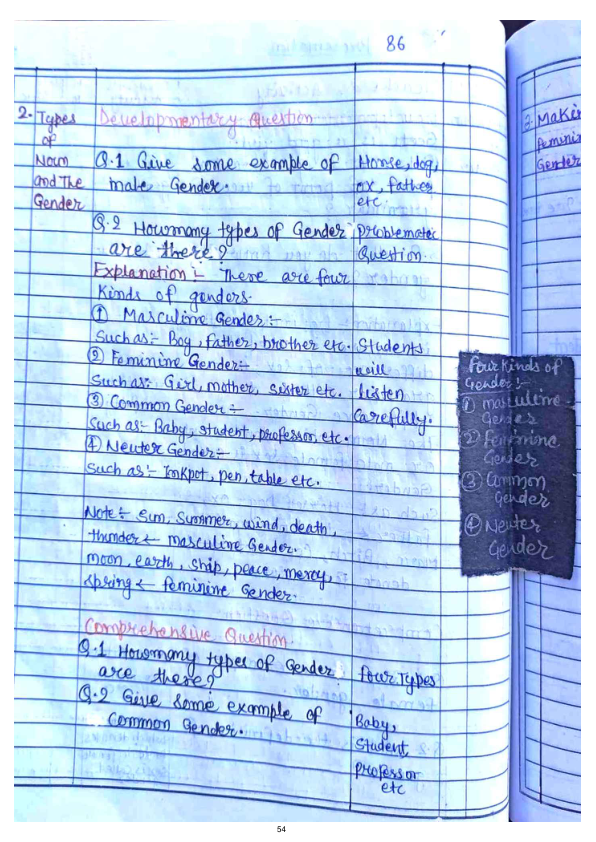 86
2. Types of Noun and The Gender
Developmentary Question
Q.1 Give some example of male Gender.
Horse, dog, ox, father etc.
Q.2 Howmany types of Gender are there?
problematic Question
Explanation :- There are four Kinds of genders.
① Masculine Gender :-
Such as:- Boy, father, brother etc.
Students will listen Carefully.
② Feminine Gender :-
Such as:- Girl, mother, sister etc.
③ Common Gender :-
Such as:- Baby, student, professor, etc.
④ Neuter Gender :-
Such as:- Inkpot, pen, table etc.
Note :- Sun, Summer, wind, death, thunder ← masculine Gender.
moon, earth, ship, peace, mercy, spring ← feminine Gender.
Comprehensive Question.
Q.1 Howmany types of Gender are there?
four Types
Q.2 Give some example of Common Gender.
Baby, Student, professor etc
four Kinds of Gender :-
① masculine Gender
② Feminine Gender
③ Common Gender
④ Neuter Gender
54